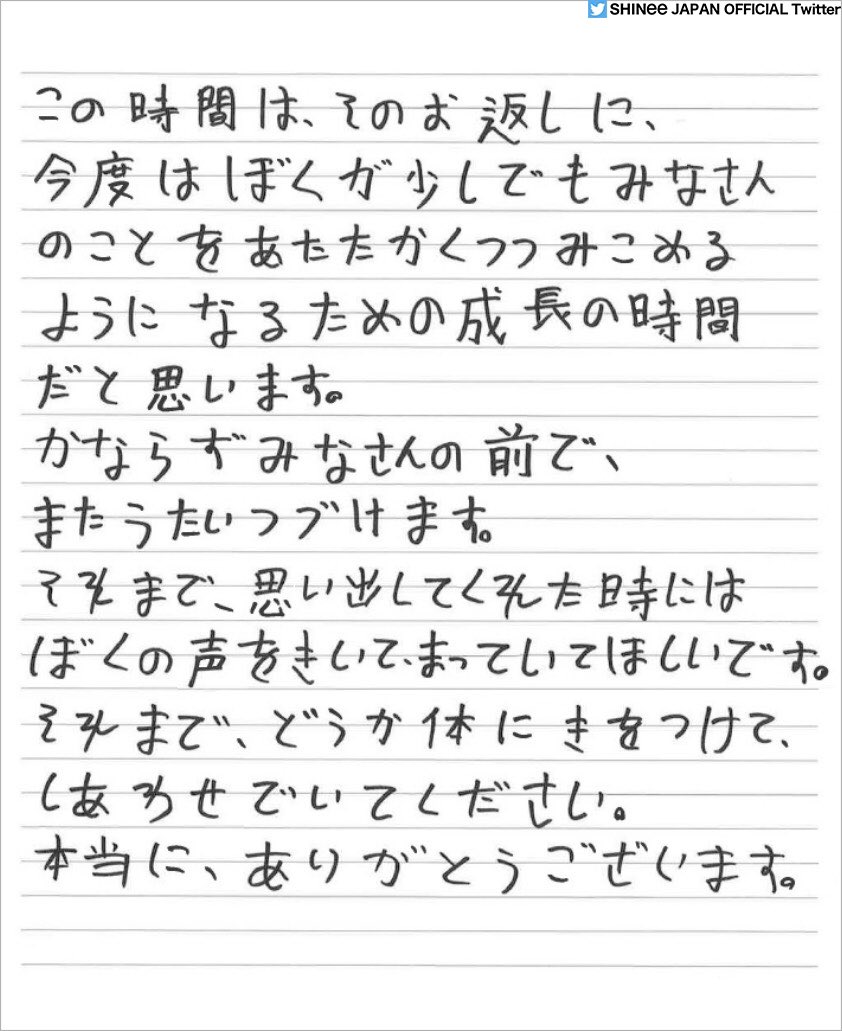 SHINee JAPAN OFFICIAL Twitter
この時間は、そのお返しに、
今度はぼくが少しでもみなさん
のことをあたたかくつつみこめる
ようになるための成長の時間
だと思います。
かならずみなさんの前で、
またうたいつづけます。
それまで、思い出してくれた時には
ぼくの声をきいて、まっていてほしいです。
それまで、どうか体にきをつけて、
しあわせでいてください。
本当に、ありがとうございます。